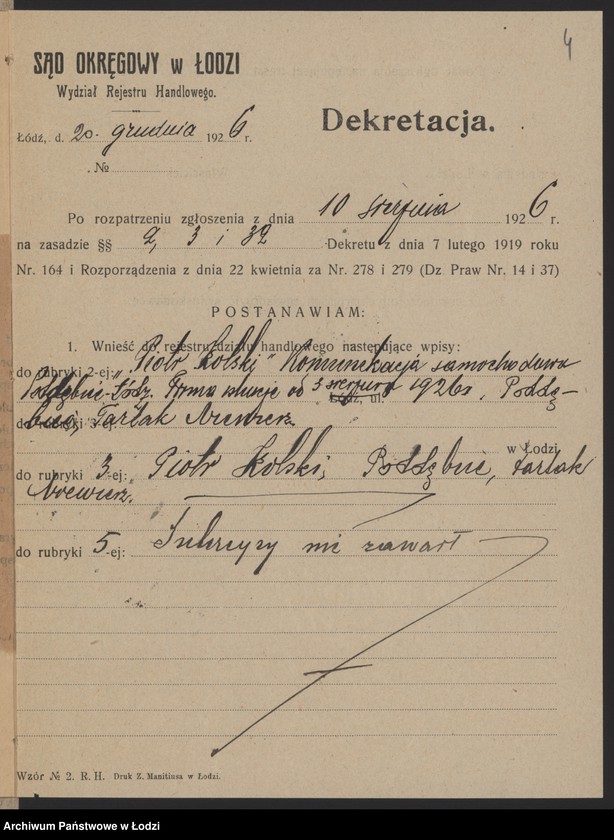 4
SĄD OKRĘGOWY w ŁODZI
Wydział Rejestru Handlowego.
Dekretacja.
Łódź, d. 20. grudnia 1926 r.
№
Po rozpatrzeniu zgłoszenia z dnia 10 sierpnia 1926 r.
na zasadzie §§ 2, 3 i 32 Dekretu z dnia 7 lutego 1919 roku
Nr. 164 i Rozporządzenia z dnia 22 kwietnia za Nr. 278 i 279 (Dz. Praw Nr. 14 i 37)
POSTANAWIAM:
1. Wnieść do rejestru działu handlowego następujące wpisy:
do rubryki 2-ej: „Piotr Kolski" Komunikacja samochodowa
Poddębice-Łódź. Firma istnieje od 5 sierpnia 1926 r. Poddę-
bice, Tartak
w Łodzi,
do rubryki 3-ej: Piotr Kolski, Poddębice, Tartak
do rubryki 5-ej: Intercyzy nie zawarł
Wzór № 2. R. H. Druk Z. Manitiusa w Łodzi.
Archiwum Państwowe w Łodzi